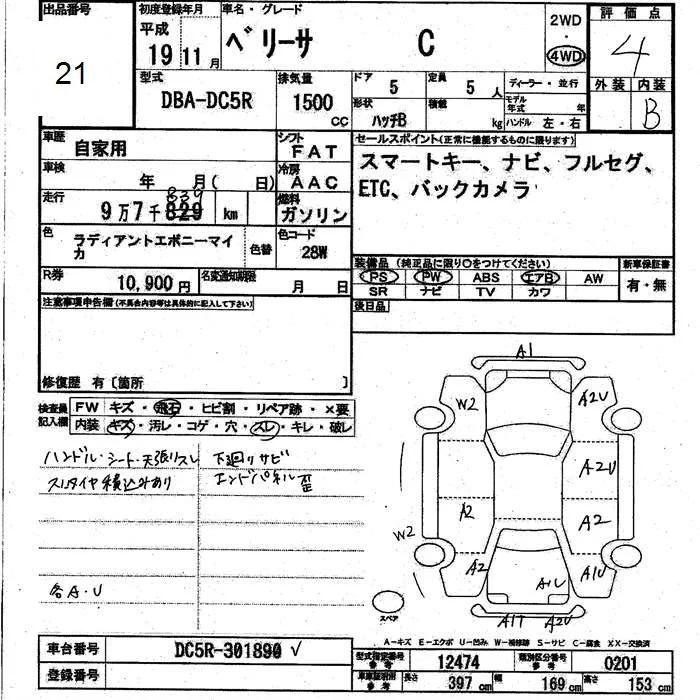 出品番号
21
初度登録年月
平成
19 11月
車名・グレード
ベリーサ C
2WD
・
4WD
評価点
4
外装 内装
B
型式
DBA-DC5R
排気量
1500
CC
ドア
5
定員
5人
ディーラー・並行
形状
ハッチB
積載
kg
モデル年式 年
ハンドル 左・右
車歴
自家用
シフト
FAT
車検
年 月( 日)
冷房
AAC
走行
839
9万7千829 km
燃料
ガソリン
色
ラディアントエボニーマイカ
色替
色コード
28W
R券
10,900円
名変通知期限
月 日
セールスポイント(正常に機能するものに限ります)
スマートキー、ナビ、フルセグ、
ETC、バックカメラ
装備品(純正品に限り○をつけてください)
新車保証書
PS PW ABS エアB AW
SR ナビ TV カワ
有・無
後日品
注意事項申告欄(不具合内容等は具体的に記入して下さい)
修復歴 有〔箇所 〕
検査員
記入欄
FW キズ・飛石・ヒビ割・リペア跡・×要
内装 キズ・汚レ・コゲ・穴・スレ・キレ・破レ
ハンドル・シート・天張リスレ 下廻リサビ
スタッドレスタイヤ積込みあり エンドパネル歪
各A・U
A1
W2 A2U
A2U
A2 A2
W2
A2 A1U A1U
A1T A2U
スペア
A-キズ E-エクボ U-凹み W-補修跡 S-サビ C-腐食 XX-交換済
車台番号
DC5R-301890 ✓
登録番号
型式指定番号
参考
12474
類別区分番号
参考
0201
車車証明用
参考
長さ 397cm 幅 169cm 高さ 153cm